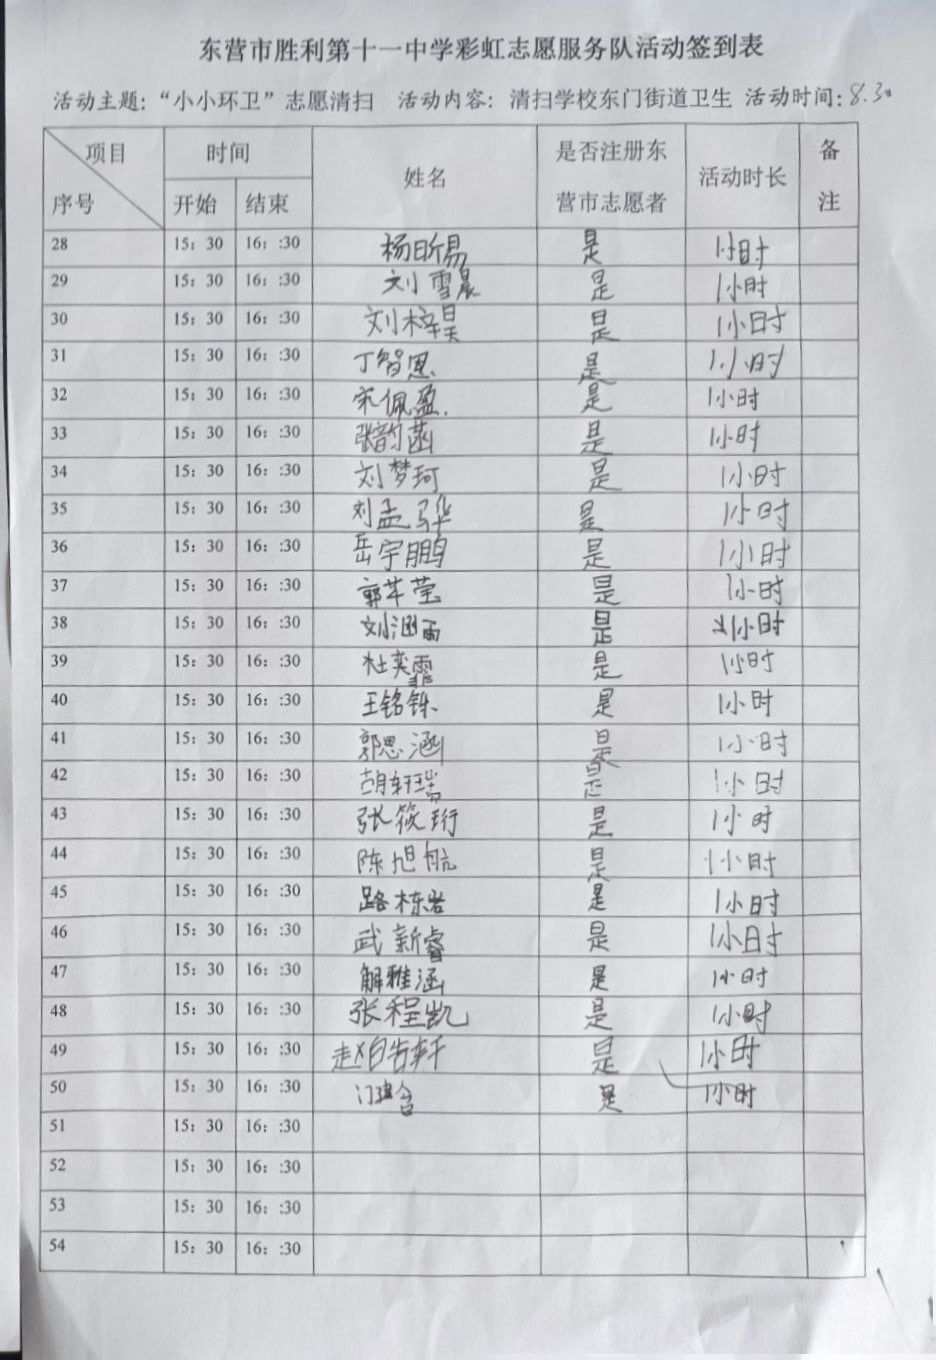 东营市胜利第十一中学彩虹志愿服务队活动签到表
活动主题:“小小环卫”志愿清扫 活动内容: 清扫学校东门街道卫生 活动时间: 8.30
项目 序号 时间 开始 结束 姓名 是否注册东营市志愿者 活动时长 备注
28 15: 30 16: :30 杨昕易 是 1小时
29 15: 30 16: :30 刘雪晨 是 1小时
30 15: 30 16: :30 刘梓昊 是 1小时
31 15: 30 16: :30 丁智恩 是 1小时
32 15: 30 16: :30 宋佩盈 是 1小时
33 15: 30 16: :30 张韵菡 是 1小时
34 15: 30 16: :30 刘梦珂 是 1小时
35 15: 30 16: :30 刘孟骅 是 1小时
36 15: 30 16: :30 岳宇鹏 是 1小时
37 15: 30 16: :30 郭芊莹 是 1小时
38 15: 30 16: :30 刘涵雨 是 1小时
39 15: 30 16: :30 杜奕霏 是 1小时
40 15: 30 16: :30 王铭铄 是 1小时
41 15: 30 16: :30 郭思涵 是 1小时
42 15: 30 16: :30 胡轩瑞 是 1小时
43 15: 30 16: :30 张筱珩 是 1小时
44 15: 30 16: :30 陈旭航 是 1小时
45 15: 30 16: :30 路栋岩 是 1小时
46 15: 30 16: :30 武新睿 是 1小时
47 15: 30 16: :30 解雅涵 是 1小时
48 15: 30 16: :30 张程凯 是 1小时
49 15: 30 16: :30 赵皓轩 是 1小时
50 15: 30 16: :30 是 1小时
51 15: 30 16: :30
52 15: 30 16: :30
53 15: 30 16: :30
54 15: 30 16: :30